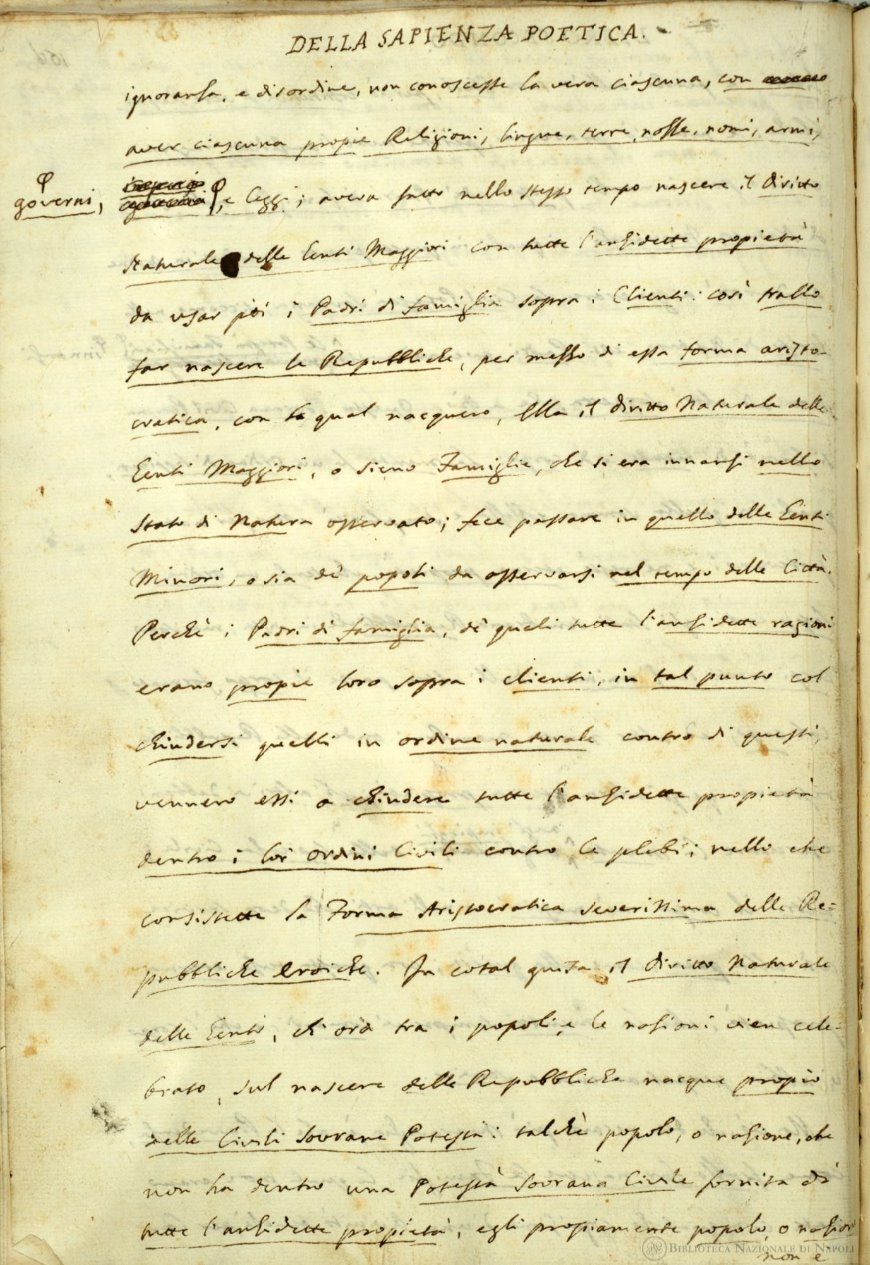 DELLA SAPIENZA POETICA.
ignoranza, e disordine, non conoscesse la vera ciascuna, con
aver ciascuna propie Religioni, lingue, terre, nozze, nomi, armi,
governi,
e leggi; aveva fatto nello stesso tempo nascere il Diritto
Naturale delle Genti Maggiori con tutte l'anzidette propietà
da usar poi i Padri di famiglia sopra i Clienti: così trallo
far nascere le Repubbliche, per mezzo di essa forma aristo-
cratica, con la qual nacquero, Ella il diritto Naturale delle
Genti Maggiori, o sieno Famiglie, che si era innanzi nello
Stato di Natura osservato; fece passare in quello delle Genti
Minori, o sia de' popoli da osservarsi nel tempo delle Città.
Perchè i Padri di famiglia, de' quali tutte l'anzidette ragioni
erano propie loro sopra i clienti, in tal punto col
chiudersi quelli in ordine naturale contro di questi,
vennero essi a chiudere tutte l'anzidette propietà
dentro i lor ordini Civili contro le plebi; nello che
consistette la Forma Aristocratica severissima delle Re=
pubbliche Eroiche. In cotal guisa il Diritto Naturale
delle Genti, ch'ora tra i popoli, e le nazioni vien cele=
brato, sul nascere delle Repubbliche nacque propio
delle Civili Sovrane Potestà: talchè popolo, o nazione, che
non ha dentro una Potestà Sovrana Civile fornita di
tutte l'anzidette propietà, egli propiamente popolo, o nazione
non è
BIBLIOTECA NAZIONALE DI NAPOLI